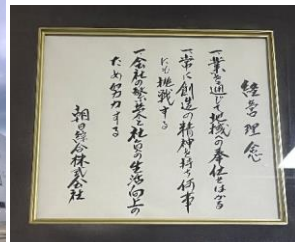 経営理念
一、業を通じて地域への奉仕をはかる
一、常に創造の精神を持ち何事
にも挑戦する
一、会社の繁栄と社員の生活向上の
ため努力する
朝日綜合株式会社